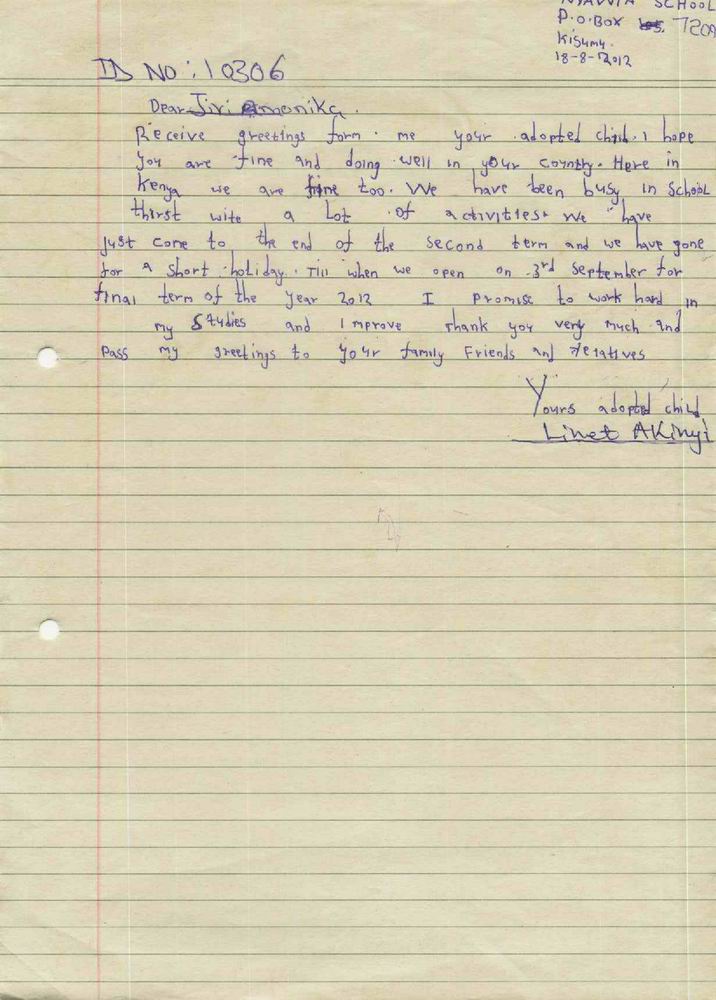 SCHOOL
P.O.BOX 7209
Kisumu.
18-8-2012
ID NO: 10306
Dear Jiri
Receive greetings form. me your adopted child. I hope
you are fine and doing well in your country. Here in
Kenya we are fine too. We have been busy in School
thirst wite a Lot of activities. We have
just come to the end of the second term and we have gone
for a short holiday. Till when we open on 3rd September for
final term of the year 2012 I promise to work hard in
my Studies and Improve thank you very much and
Pass my greetings to your family Friends and relatives
Yours adopted child
Linet AKinyi